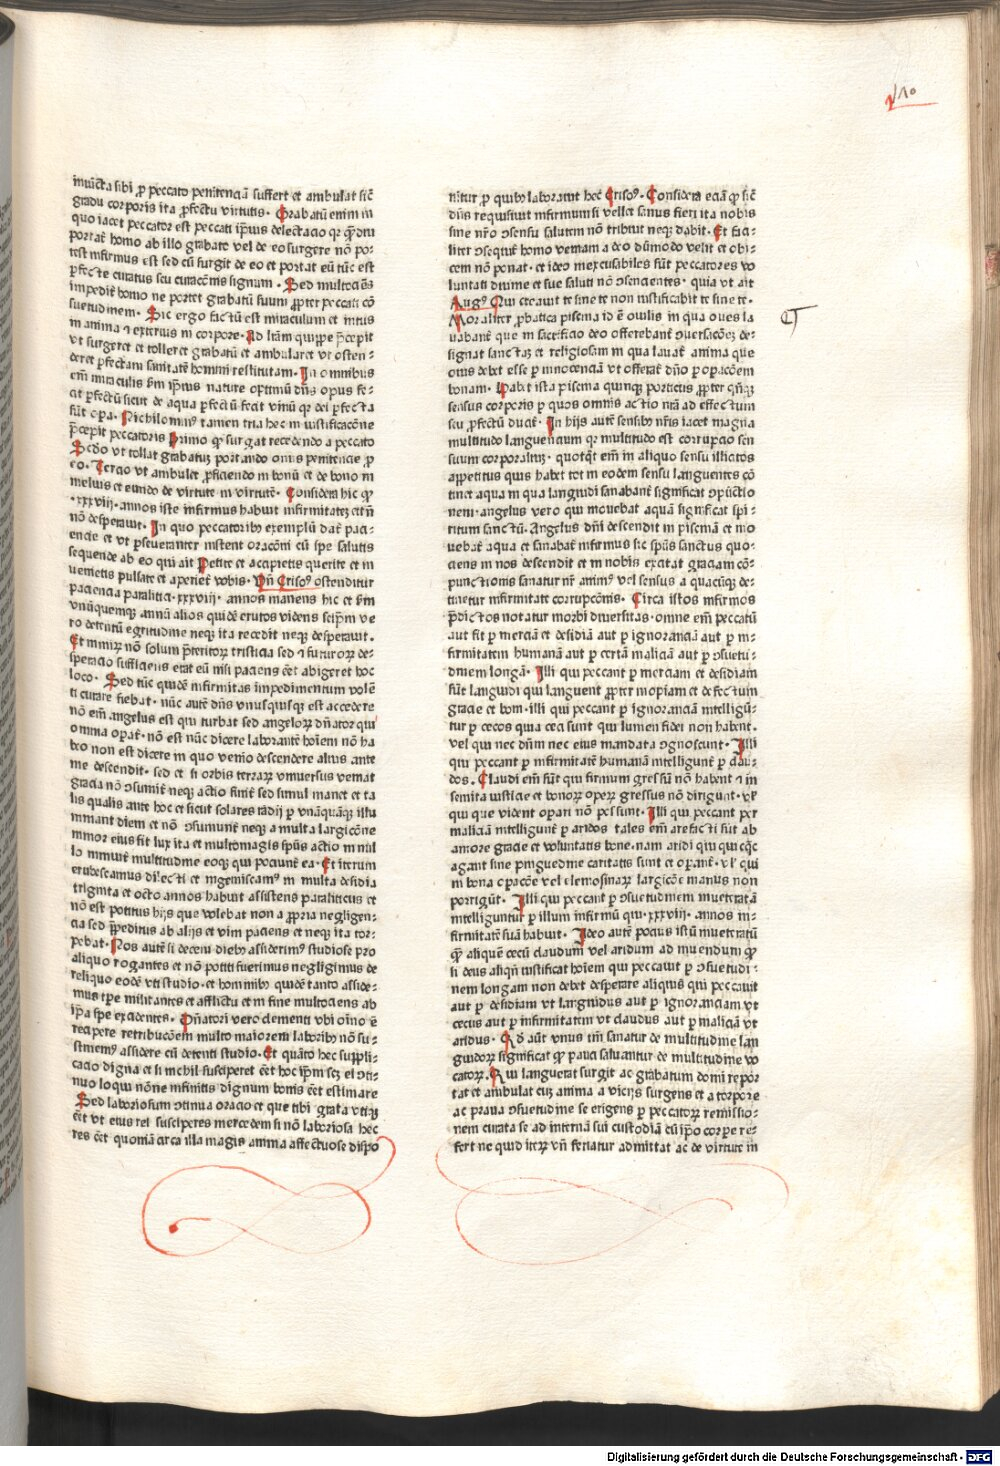 iniūcta sibi ꝓ peccato penitenciā suffert et ambulat sic̄
gradu corporis ita ꝓfectu virtutis · Grabatū enim in
quo iacet peccator est peccati ip̄ius delectacio qr qͫdiu
portat̄ homo ab illo grabato vel de eo surgere nō po⸗
test infirmus est sed cū surgit de eo et portat eū tūc est
ꝑfecte curatus seu curacōnis signum · Sed multociēs
impedit̄ homo ne portet grabatū suum ꝓpter peccati cō
suetudinem · Sic ergo factū est miraculum et intus
in anima ⁊ exterius in corpore · Ad lr̄am quippe p̄cepit
vt surgeret et tolleret grabatū et ambularet vt osten⸗
deret ꝑfectam sanitatē homini restitutam · In omnibus
em̄ miraculis s̄m ip̄ius nature optimū dn̄s opus fe⸗
cit ꝑfectū sicut de aqua ꝑfectū fecit vinū qr dei ꝑfecta
sūt oꝑa · Nichilominꝰ tamen tria hec in iustificacōne
p̄cepit peccatoris Primo ꝙ surgat recedendo a peccato
Scd̄o vt tollat grabatūꝫ portando onus penitencie ꝓ
eo · Tercio vt ambulet ꝓficiendo in bonū et de bono in
melius et eundo de virtute in virtutē · Considera hic ꝙ
· xxxviij · annos iste infirmus habuit infirmitateꝫ et tn̄
nō desperauit · In quo peccatoribꝫ exemplū dat̄ paci⸗
encie et vt ꝑseueranter instent oracōni cū spe salutis
sequende ab eo qui ait Petite et accipietis querite et in
uenietis pulsate et aperiet̄ vobis · Vn̄ Crisoꝰ ostenditur
paciencia paralitici · xxxviij · annos manens hic et s̄m
vnūquemqꝫ annū alios quidē erutos videns seip̄m ve
ro detentū egritudine neqꝫ ita recedit neqꝫ desperauit ·
Et nimiꝝ nō solum p̄teritoꝝ tristicia sed ⁊ futuroꝝ de⸗
speracio sufficiens erat eū nisi paciens eēt abigeret hoc
loco · Sed tūc quidē infirmitas impedimentum volē
ti curare fiebat · nūc autē dn̄s vnusquisqꝫ est accedere
nō em̄ angelus est qui turbat sed angeloꝝ dn̄ator qui
omnia oꝑat̄ · nō est nūc dicere laborantē hoīem nō ha
beo non est dicere in quo venio descendere alius ante
me descendit · sed et si orbis terraꝝ vniuersus veniat
gracia nō ↄsumit̄ neqꝫ actio finit̄ sed simul manet et ta
lis qualis ante hoc et sicut solares radij ꝑ vnāquāqꝫ illu
minant diem et nō ↄsumunt̄ neqꝫ a multa largicōne
minor eius fit lux ita et multomagis spūs actio in nul
lo minuit̄ multitudine eoqꝫ qui pociunt̄ ea · Et iterum
erubescamus dilecti et ingemiscamꝰ in multa desidia
triginta et octo annos habuit assistens paraliticus et
nō est potitus hijs que volebat non a ꝓpria negligen⸗
cia sed p̄peditus ab alijs et vim paciens et neqꝫ ita tor⸗
pebat · Nos autē si decem diebꝫ assiderimꝰ studiose pro
aliquo rogantes et nō potiti fuerimus negligimus de
reliquo eodē vti studio · et hominibꝫ quidē tanto asside⸗
mus tꝑe militantes et afflictu et in fine multociens ab
ip̄a spe excidentes · Dn̄atori vero clementi vbi oīno ē
recipere retribucōem multo maiorem laboribꝫ nō su⸗
stinemꝰ assidere cū detenti studio · Et quāto hec suppli⸗
cacio digna et si nichil susciperet eēt hoc ip̄m scꝫ el ↄti⸗
nuo loqui nōne infinitis dignum bonis eēt estimare
Sed laboriosum ↄtinua oracio et que tibi grata vtiqꝫ
eēt vt eius rei susciperes mercedem si nō laboriosa hec
res eēt quoniā arca illa magis anima affectuose dispo
nitur ꝓ quibꝫ laborant hec Crisoꝰ · Considera eciā ꝙ sic̄
dn̄s requisiuit infirmum si vellet sanus fieri ita nobis
sine nr̄o ↄsensu salutem nō tribuit neqꝫ dabit · Et faci⸗
liter ↄsequit̄ homo veniam a deo dūmodo velit et obi⸗
cem nō ponat · et ideo inexcusabiles sūt peccatores vo
luntati diuine et sue saluti nō ↄsencientes · quia vt ait
Augꝰ Qui creauit te sine te non iustificabit te sine te ·
Moraliter ꝓbatica piscina id ē ouilis in qua oues la
uabant̄ que in sacrificio deo offerebant̄ ↄuersacōeꝫ de⸗
signat sanctaꝫ et religiosam in qua lauat̄ anima que
ouis debet esse ꝑ innocenciā vt offerat̄ dn̄o ꝑ oꝑacōem
bonam · Habet ista piscina quinqꝫ porticus ꝓpter qn̄qꝫ
sensus corporis ꝑ quos omnis actio nr̄a ad effectum
seu ꝓfectū ducit̄ · In hijs autē sensibꝫ nr̄is iacet magna
multitudo languenciū qr multitudo est corrupcio sen
suum corporaliuꝫ · quotqͦt em̄ in aliquo sensu illicitos
appetitus quis habet tot in eodem sensu languentes cō
tinet aqua in qua languidi sanabant̄ significat ↄpūctio
nem · angelus vero qui mouebat aquā significat spi⸗
ritum sanctū · Angelus dn̄i descendit in piscinā et mo
uebat̄ aqua et sanabat̄ infirmus sic spūs sanctus quo⸗
ciens in nos descendit et in nobis excitat graciam cō⸗
punctionis sanatur nr̄ animꝰ vel sensus a quacūqꝫ de⸗
tinetur infirmitate corrupcōnis · Circa istos infirmos
p̄dictos notatur morbi diuersitas · omne em̄ peccatū
aut fit ꝑ inerciā et desidiā aut ꝑ ignoranciā aut ꝑ in⸗
firmitatem humanā aut ꝑ certā maliciā aut ꝑ ↄsuetu⸗
dinem longā · Illi qui peccant ꝑ inerciam et desidiam
sūt languidi qui languent ꝓpter inopiam et defectum
gracie et boni · illi qui peccant ꝑ ignoranciā intelligū⸗
tur ꝑ cecos quia ceci sunt qui lumen fidei non habent ·
vel qui nec dn̄m nec eius mandata ↄgnoscunt · Illi
qui peccant ꝑ infirmitatē humanā intelligunt̄ ꝑ clau⸗
dos · Claudi em̄ sūt qui firmum gressū nō habent ⁊ in
semita iusticie et bonoꝝ operꝝ gressus nō dirigunt · vl̓
qui que vident oꝑari nō possunt · Illi qui peccant per
maliciā intelligunt̄ ꝑ aridos tales em̄ arefacti sūt ab
amore gracie et voluntatis bone · nam aridi qui quicqͦ
agant sine pinguedine caritatis sunt et oꝑant̄ · vl̓ qui
in bona oꝑacōe vel elemosinaꝝ largicōe manus non
porrigūt · Illi qui peccant ꝑ ↄsuetudinem inueteratā
intelliguntur ꝑ illum infirmū qui · xxxviij · annos in⸗
firmitatē suā habuit · Ideo autē pocius istū inueteratū
qͫ aliquē cecū claudum vel aridum ad inuendum ꝙ
si deus aliqn̄ iustificat hoīem qui peccauit ꝑ ↄsuetudi⸗
nem longam non debet desperare aliquis qui peccauit
aut ꝑ desidiam vt languidus aut ꝑ ignoranciam vt
cecus aut ꝑ infirmitatem vt claudus aut ꝑ maliciā vt
aridus · Qd̓ aūt vnus tm̄ sanatur de multitudine lan
guidoꝝ significat ꝙ pauci saluantur de multitudine vo
catoꝝ · Qui languerat surgit ac grabatum domi repor
tat et ambulat cuꝫ anima a vicijs surgens et a torpore
ac praua ↄsuetudine se erigens ꝑ peccatoꝝ remissio⸗
nem curata se ad internā sui custodiā cū ip̄o corpe re⸗
fert ne quid iteꝝ vn̄ feriatur admittat ac de virtute in
Digitalisierung gefördert durch die Deutsche Forschungsgemeinschaft - DFG